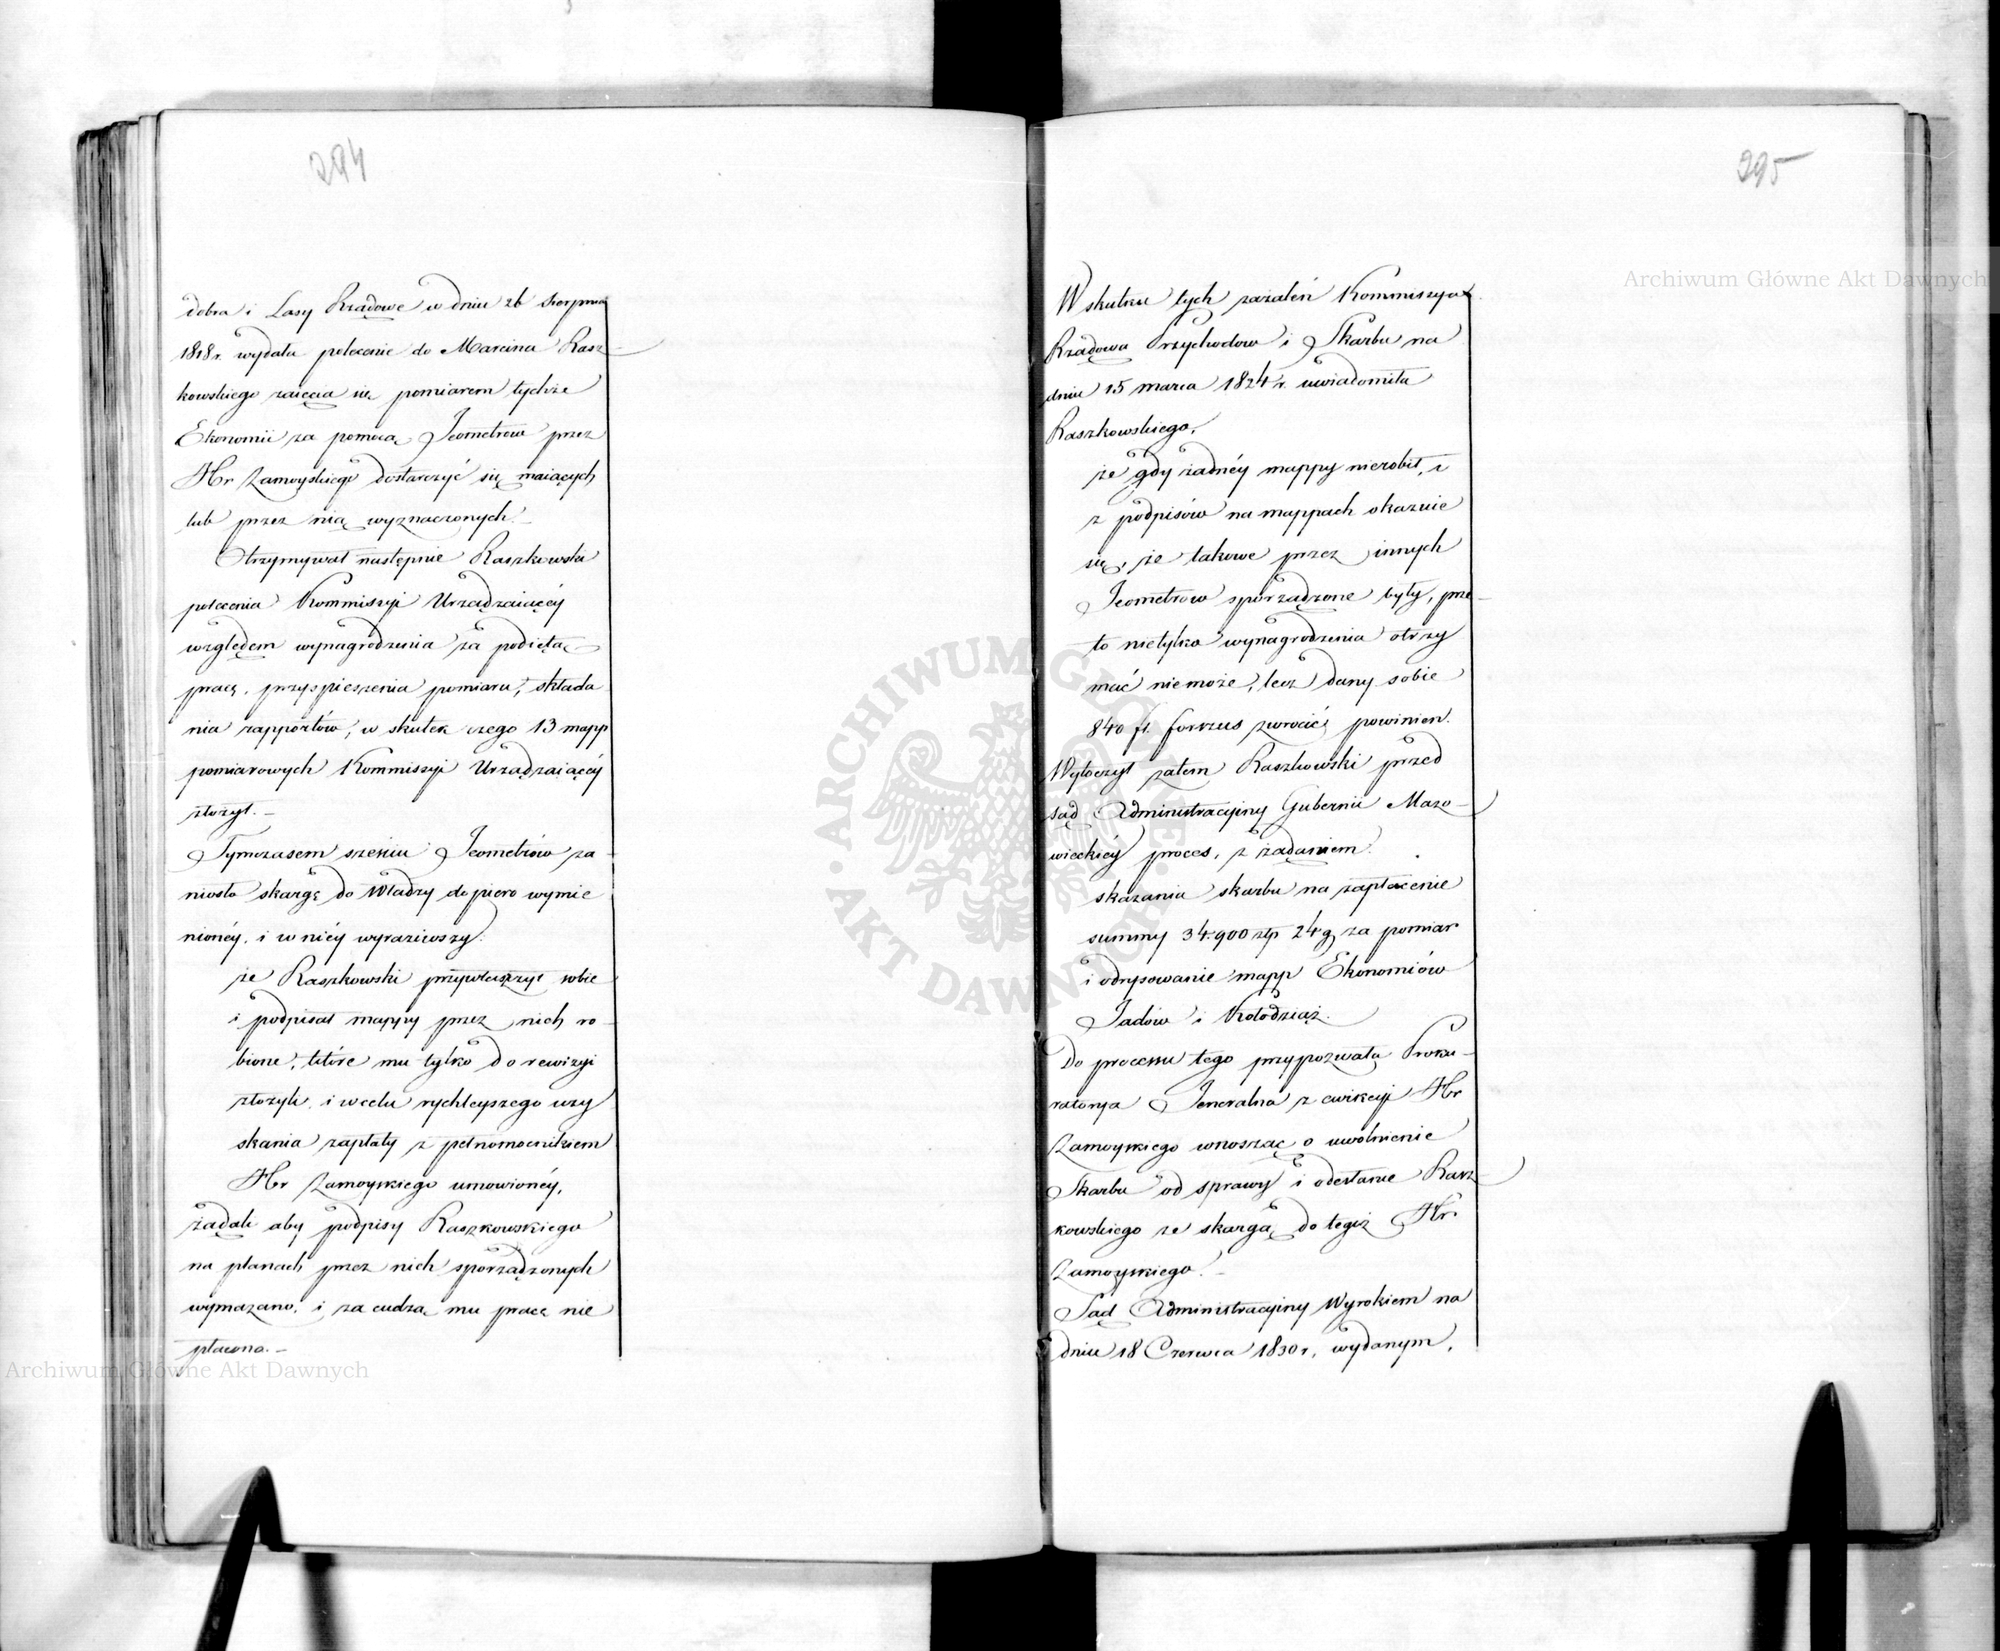 294
dobra i Lasy Rządowe w dniu 26 Sierpnia
1818 r. wydała polecenie do Marcina Rasz-
kowskiego zaięcia się pomiarem tychże
Ekonomii za pomocą Jeometrów przez
Hr Zamoyskiego dostarczyć się maiących
lub przez nią wyznaczonych. –
Otrzymywał następnie Raszkowski
polecenia Kommissyi Urządzaiącéy
względem wynagrodzenia za podiętą
pracę, przyspieszenia pomiaru, składa
nia rapportów, w skutek czego 13 mapp
pomiarowych Kommissyi Urządzaiącéy
złożył. –
Tymczasem sześciu Jeometrów za
niosło skargę do Władzy dopiero wymie
nionéy, i w niéy wyraziwszy.
że Raszkowski przywłaszczył sobie
i podpisał mappy przez nich ro
bione, które mu tylko do rewizyi
złożyli, i w celu rychleyszego uzy
skania zapłaty z pełnomocnikiem
Hr Zamoyskiego umowionéy,
żądali aby podpisy Raszkowskiego
na planach przez nich sporządzonych
wymazano, i za cudzą mu pracę nie
płacono. –
295
W skutku tych zażaleń Kommissya
Rządowa Przychodow i Skarbu na
dniu 15 marca 1824 r. uwiadomiła
Raszkowskiego,
że gdy żadnéy mappy nierobił, i
z podpisów na mappach okazuie
się, że takowe przez innych
Jeometrow sporządzone były, prze-
to nietylko wynagrodzenia otrzy
mać niemoże, lecz dany sobie
840 fl. forszus zwrócić powinien.
Wytoczył zatem Raszkowski przed
sąd Administracyiny Gubernii Mazo-
wieckiéy proces, z żądaniem.
skazania skarbu na zapłacenie
summy 34.900 złp 24 g za pomiar
i odrysowanie mapp Ekonomiów
Jadów i Kołodziąż.
Do processu tego przypozwała Proku-
ratorya Jeneralna z ewikcyi Hr
Zamoyskiego wnosząc o uwolnienie
Skarbu od sprawy i odesłanie Rasz-
kowskiego ze skargą do tegiż Hr
Zamoyskiego. –
Sąd Administracyiny Wyrokiem na
dniu 18 Czerwca 1830 r. wydanym,
Archiwum Główne Akt Dawnych
Archiwum Główne Akt Dawnych
ARCHIWUM GŁÓWNE · AKT DAWNYCH ·